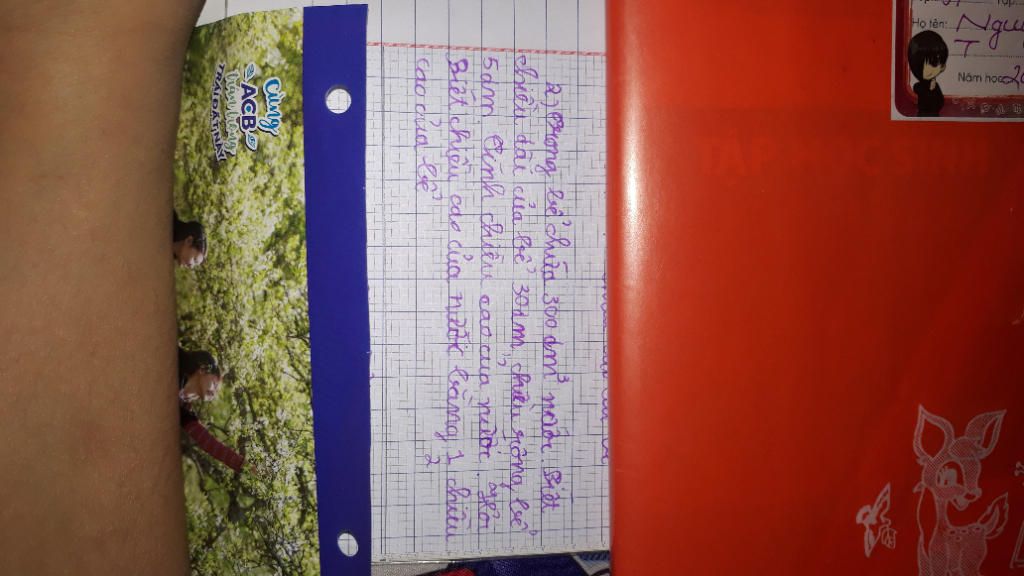 2) Trong bể chứa 300 dm³ nước. Biết
chiều dài của bể 30dm, chiều rộng bể
5dm. Tính chiều cao của nước.
Biết chiều cao của nước bằng 1/2 chiều
cao của bể
Cùng
ACB
TRÁI ĐẤT
TẬP HỌC SINH
Họ tên: Ngu
T
Năm học: 20